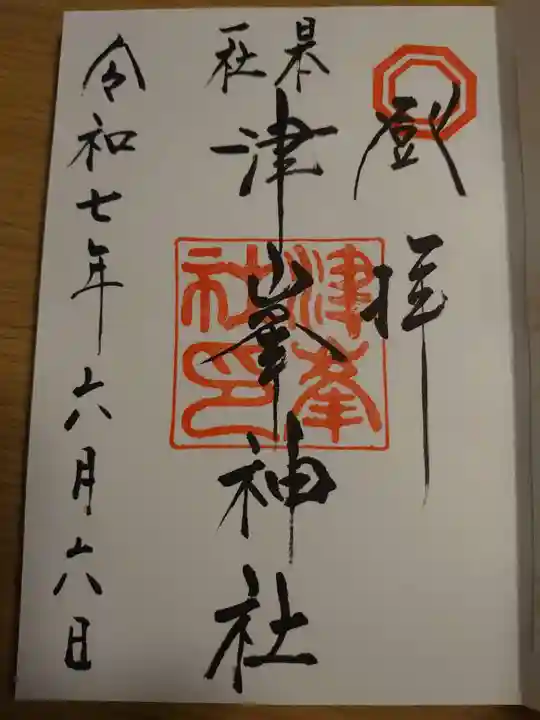 登拝
日本
一社
津峯神社
津峯
社印
令和七年六月六日